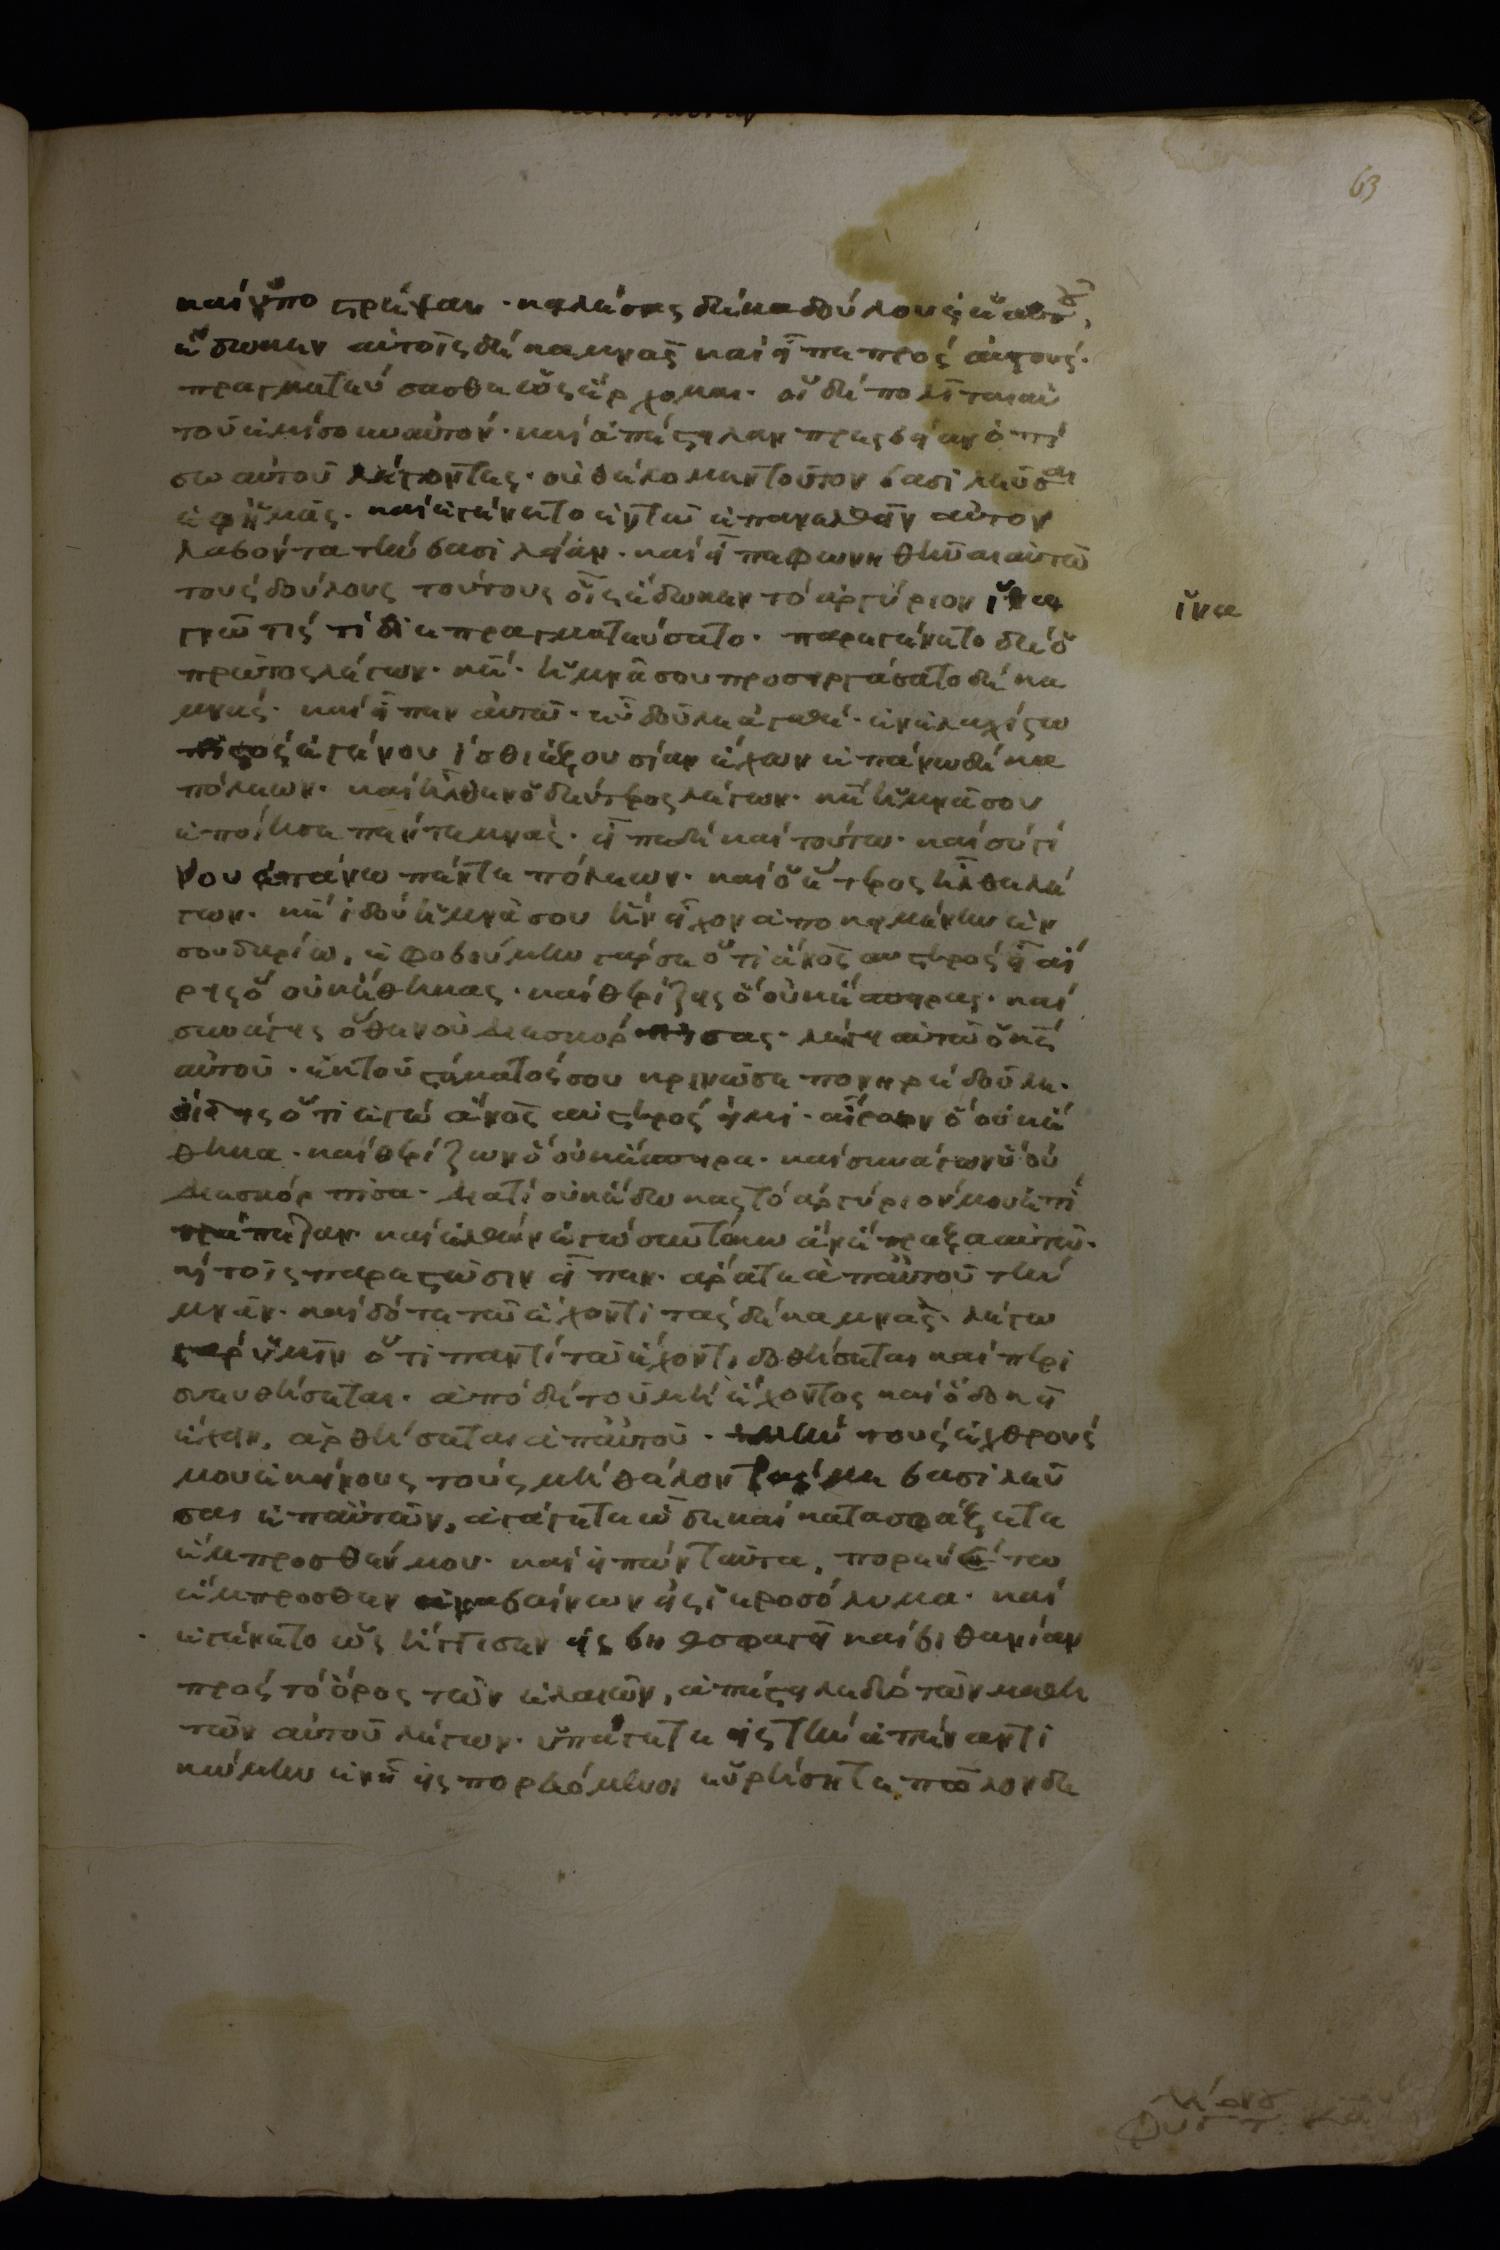 63
καὶ ὑποστρέψαι· καλέσας δέκα δούλους ἑαυτοῦ,
ἔδωκεν αὐτοῖς δέκα μνᾶς καὶ εἶπε πρὸς αὐτούς·
πραγματεύσασθε ἕως ἔρχομαι· οἱ δὲ πολῖται αὐ
τοῦ ἐμίσουν αὐτόν· καὶ ἀπέστειλαν πρεσβείαν ὀπί
σω αὐτοῦ λέγοντες· οὐ θέλομεν τοῦτον βασιλεῦσαι
ἐφ' ἡμᾶς· καὶ ἐγένετο ἐν τῷ ἐπανελθεῖν αὐτὸν
λαβόντα τὴν βασιλείαν· καὶ εἶπε φωνηθῆναι αὐτῷ
τοὺς δούλους τούτους οἷς ἔδωκεν τὸ ἀργύριον ἵνα
ἵνα
γνῷ τίς τί διεπραγματεύσατο· παρεγένετο δὲ ὁ
πρῶτος λέγων· κε· ἡ μνᾶ σου προσηργάσατο δέκα
μνάς· καὶ εἶπεν αὐτῷ· εὖ δοῦλε ἀγαθέ· ἐν ἐλαχίστω
πιστὸς ἐγένου ἴσθι ἐξουσίαν ἔχων ἐπάνω δέκα
πόλεων· καὶ ἦλθεν ὁ δεύτερος λέγων· κε ἡ μνᾶ σου
ἐποίησε πέντε μνάς· εἶπε δὲ καὶ τούτω· καὶ σὺ γί
νου ἐπάνω πέντε πόλεων· καὶ ὁ ἕτερος ἦλθε λέ
γων· κε ἰδοὺ ἡ μνᾶ σου ἣν εἶχον ἀποκειμένην ἐν
σουδαρίω, ἐφοβούμην γάρ σε ὅτι ἄνος αυστηρὸς εἶ αἴ
ρεις ὃ οὐκ ἔθηκας· καὶ θερίζεις ὃ οὐκ ἔσπειρας· καὶ
συνάγεις ὅθεν οὐ διεσκόρπισας· λέγει αὐτῷ ὁ κς
αὐτοῦ· ἐκ τοῦ στόματός σου κρινῶ σε πονηρὲ δοῦλε·
ἤδεις ὅτι ἐγὼ ἄνος αὐστηρός εἰμι· αἴρων ὃ οὐκ ἔ
θηκα· καὶ θερίζων ὃ οὐκ ἔσπειρα· καὶ συνάγων ὃ οὐ
διεσκόρπισα· διατί οὐκ ἔδωκας τὸ ἀργύριόν μου ἐπὶ
τράπεζαν· καὶ ἐλθὼν ἐγὼ σὺν τόκω ἂν ἔπραξα αὐτό·
καὶ τοῖς παρεστῶσιν εἶπεν· ἄρατε ἀπ' αὐτοῦ τὴν
μνᾶν· καὶ δότε τῷ ἔχοντι τὰς δέκα μνᾶς· λέγω
γὰρ ὑμῖν ὅτι παντὶ τῷ ἔχοντι δοθήσεται καὶ περι
σσευθήσεται· ἀπὸ δὲ τοῦ μὴ ἔχοντος καὶ ὃ δοκεῖ
ἔχειν, ἀρθήσεται ἀπ' αὐτοῦ· πλὴν τοὺς ἐχθρούς
μου ἐκείνους τοὺς μὴ θέλοντάς με βασιλεῦ
σαι ἐπ' αὐτῶν, ἀγάγετε ὧδε καὶ κατασφάξατε
ἔμπροσθέν μου· καὶ εἰπὼν ταῦτα, πορεύετο
ἔμπροσθεν ἀναβαίνων εἰς ἱεροσόλυμα· καὶ
ἐγένετο ὡς ἤγγισεν εἰς βηθσφαγῆ καὶ βιθανίαν
πρὸς τὸ ὄρος τῶν ἐλαιῶν, ἀπέστειλε δύο τῶν μαθη
τῶν αὐτοῦ λέγων· ὑπάγετε εἰς τὴν ἀπέναντι
κώμην ἐν ᾗ εἰσπορευόμενοι εὑρήσητε πῶλον δε